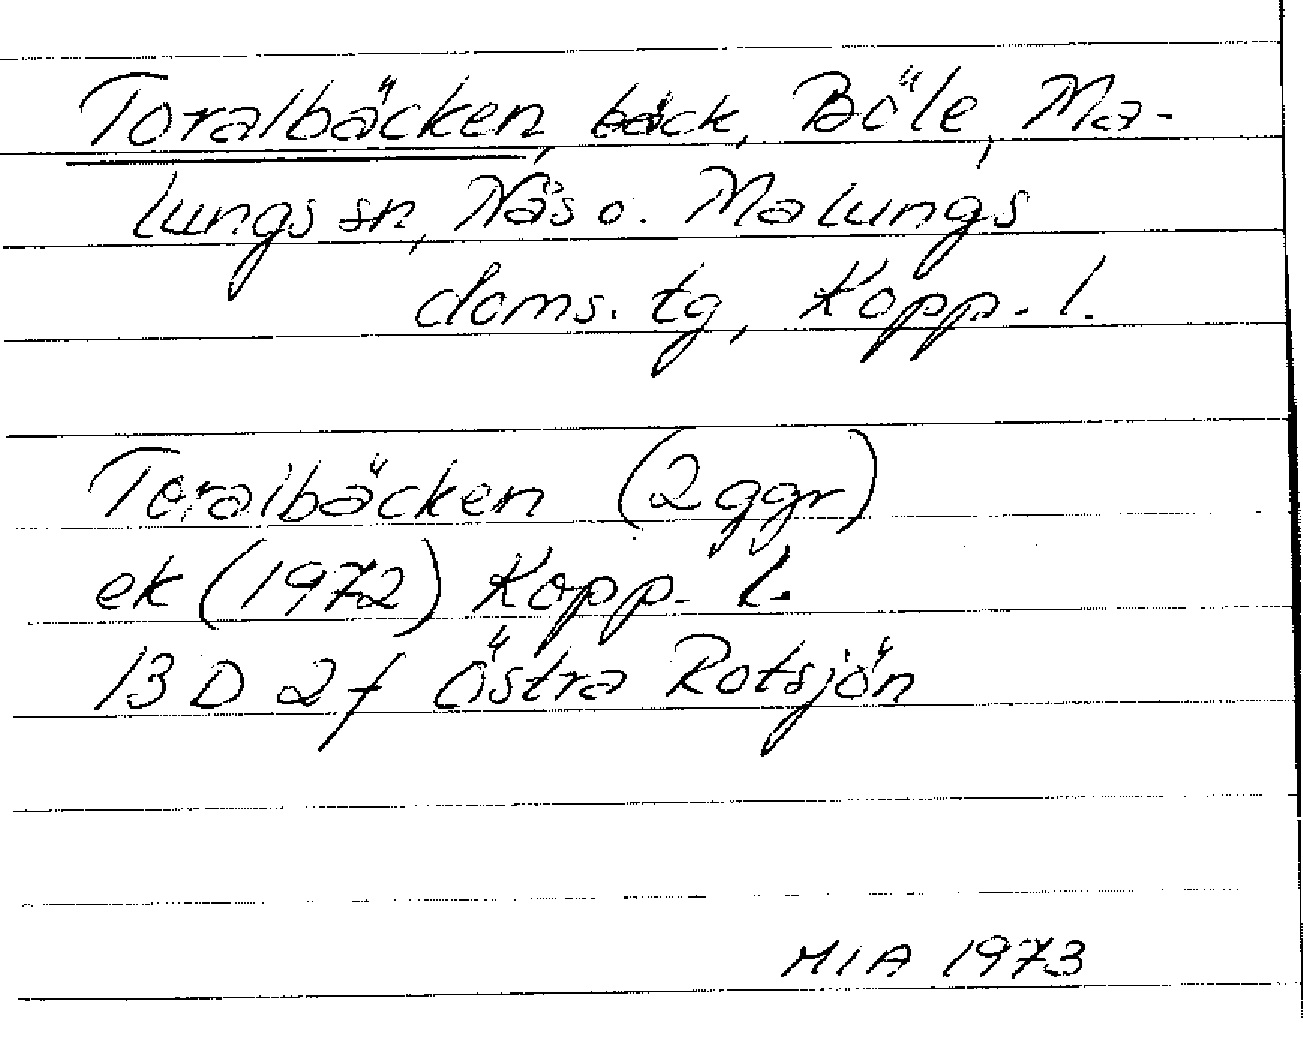 Toralbäcken, bäck, Böle, Ma-
lungs sn, Näs o. Malungs
doms. tg, Kopp. l.
Toralbäcken (2 ggr)
ek (1972) Kopp. l.
13 D 2 f Östra Rotsjön
MIA 1973